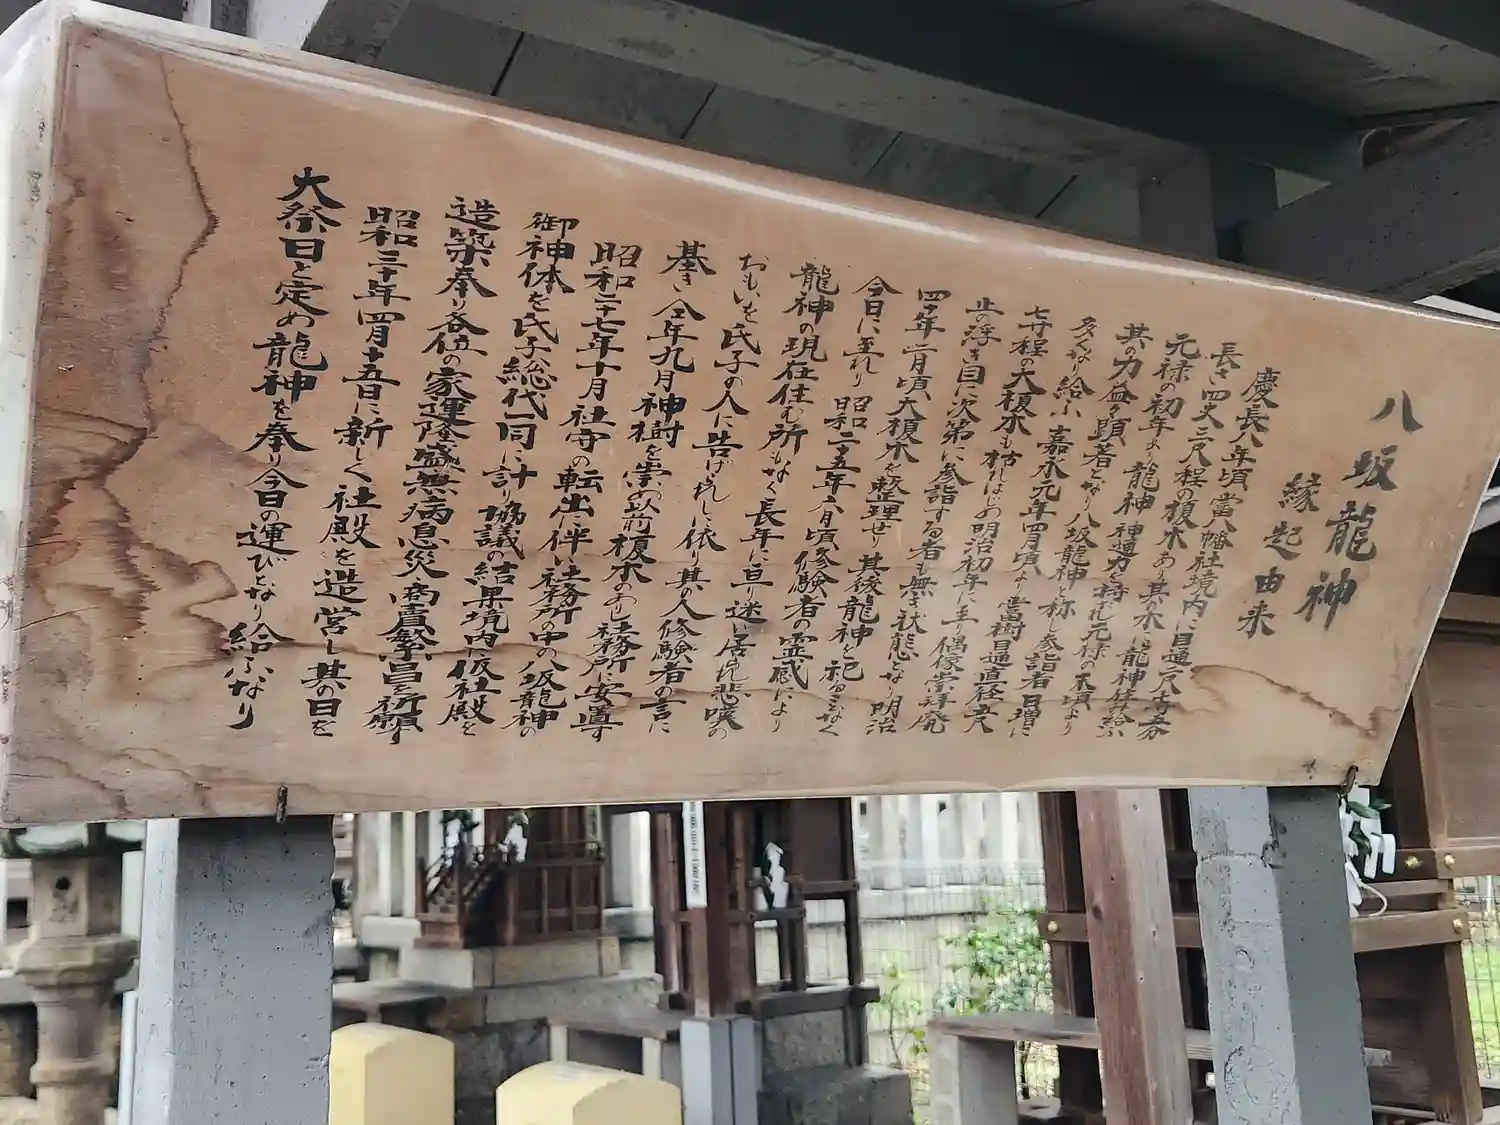 八坂龍神
縁起由来
慶長八年頃當八幡社境内に目通一尺五寸
長さ四丈三尺程の榎木あり其の木に龍神住み給ふ
元禄の初年より龍神神通力を持ち元禄の末頃より
其の力益々顕著となり八坂龍神と称し参詣者日増に
多くなり給ふ嘉永元年四月頃より當樹目通直径
七寸程の大榎木も枯れはじめ明治初年に至り偶像崇拝廃
止の浮き目に次第に参詣する者も無き状態となり明治
四十年二月頃大榎木を整理せり其後龍神を祀る事なく
今日に至れり昭和二十五年六月頃修験者の霊感により
龍神の現在住む所もなく長年に亘り迷い居られ悲嘆の
おもいを氏子の人に告げられしに依り其の人修験者の言に
基き仝年九月神樹を崇め以前榎木のあり社務所に安置す
昭和二十七年十月社守の転出に伴い社務所の中の八坂龍神の
御神体を氏子総代一同に計り協議の結果境内に仮社殿を
造築奉り各位の家運隆盛無病息災商売繁昌を祈願す
昭和三十年四月十五日に新しく社殿を造営し其の日を
大祭日と定め龍神を奉り今日の運びとなり給ふなり